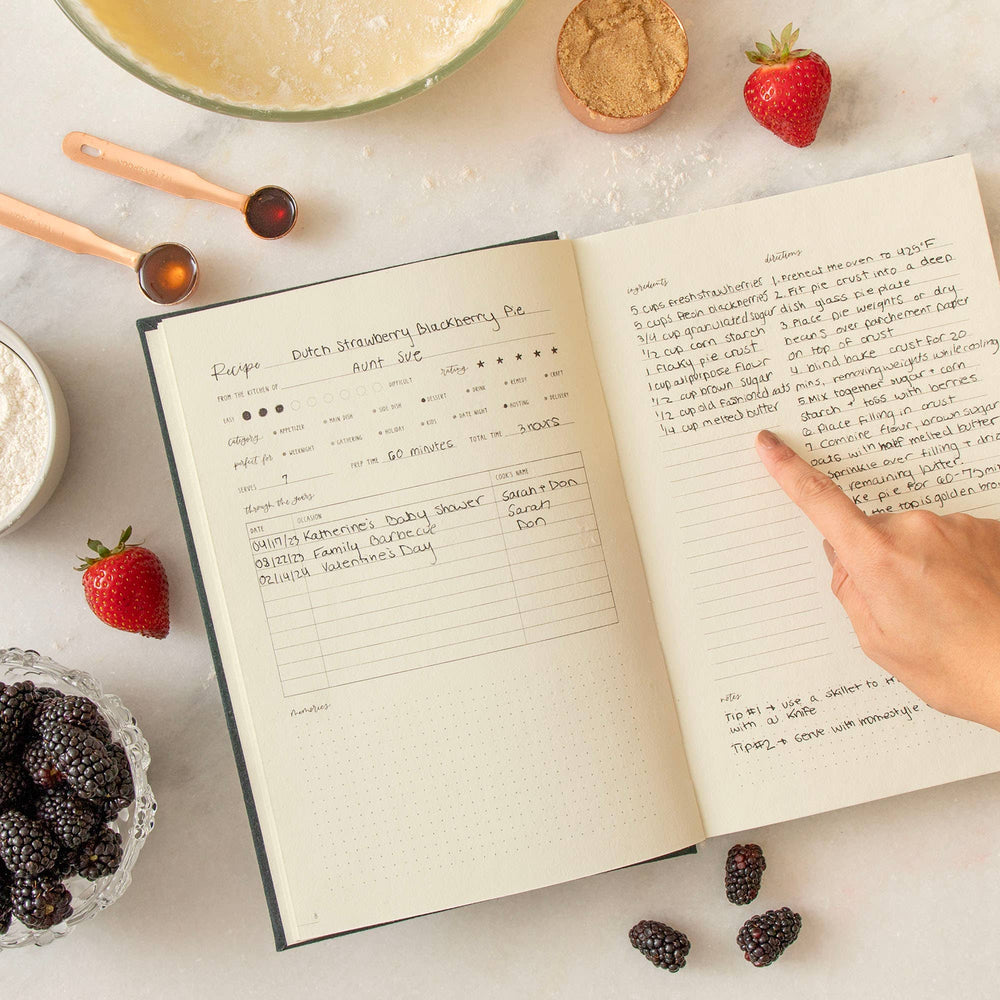 Recipe Dutch Strawberry Blackberry Pie
FROM THE KITCHEN OF Aunt Sue
EASY DIFFICULT rating
category APPETIZER MAIN DISH SIDE DISH DESSERT DRINK REMEDY CRAFT
perfect for WEEKNIGHT GATHERING HOLIDAY KIDS DATE NIGHT HOSTING DELIVERY
SERVES 7 PREP TIME 60 minutes TOTAL TIME 3 hours
through the years
DATE OCCASION COOK'S NAME
04/17/23 Katherine's Baby Shower Sarah + Don
08/22/23 Family Barbecue Sarah
02/14/24 Valentine's Day Don
memories
8
ingredients
5 cups fresh strawberries
5 cups fresh blackberries
3/4 cup granulated sugar
1/2 cup corn starch
1 flaky pie crust
1 cup all purpose flour
1/2 cup brown sugar
1/2 cup old fashioned oats
1/4 cup melted butter
directions
1. Preheat the oven to 425°F
2. Fit pie crust into a deep
dish glass pie plate
3 Place pie weights or dry
beans over parchment paper
on top of crust
4. blind bake crust for 20
mins, removing weights while cooling
5. Mix together sugar + corn
starch + toss with berries
6. Place filling in crust
7. Combine flour, brown sugar
oats with half melted butter
sprinkle over filling +
remaining butter.
pie for 60-75
the top is golden
notes
Tip #1 → use a skillet to
with a knife
Tip #2 → serve with homestyle